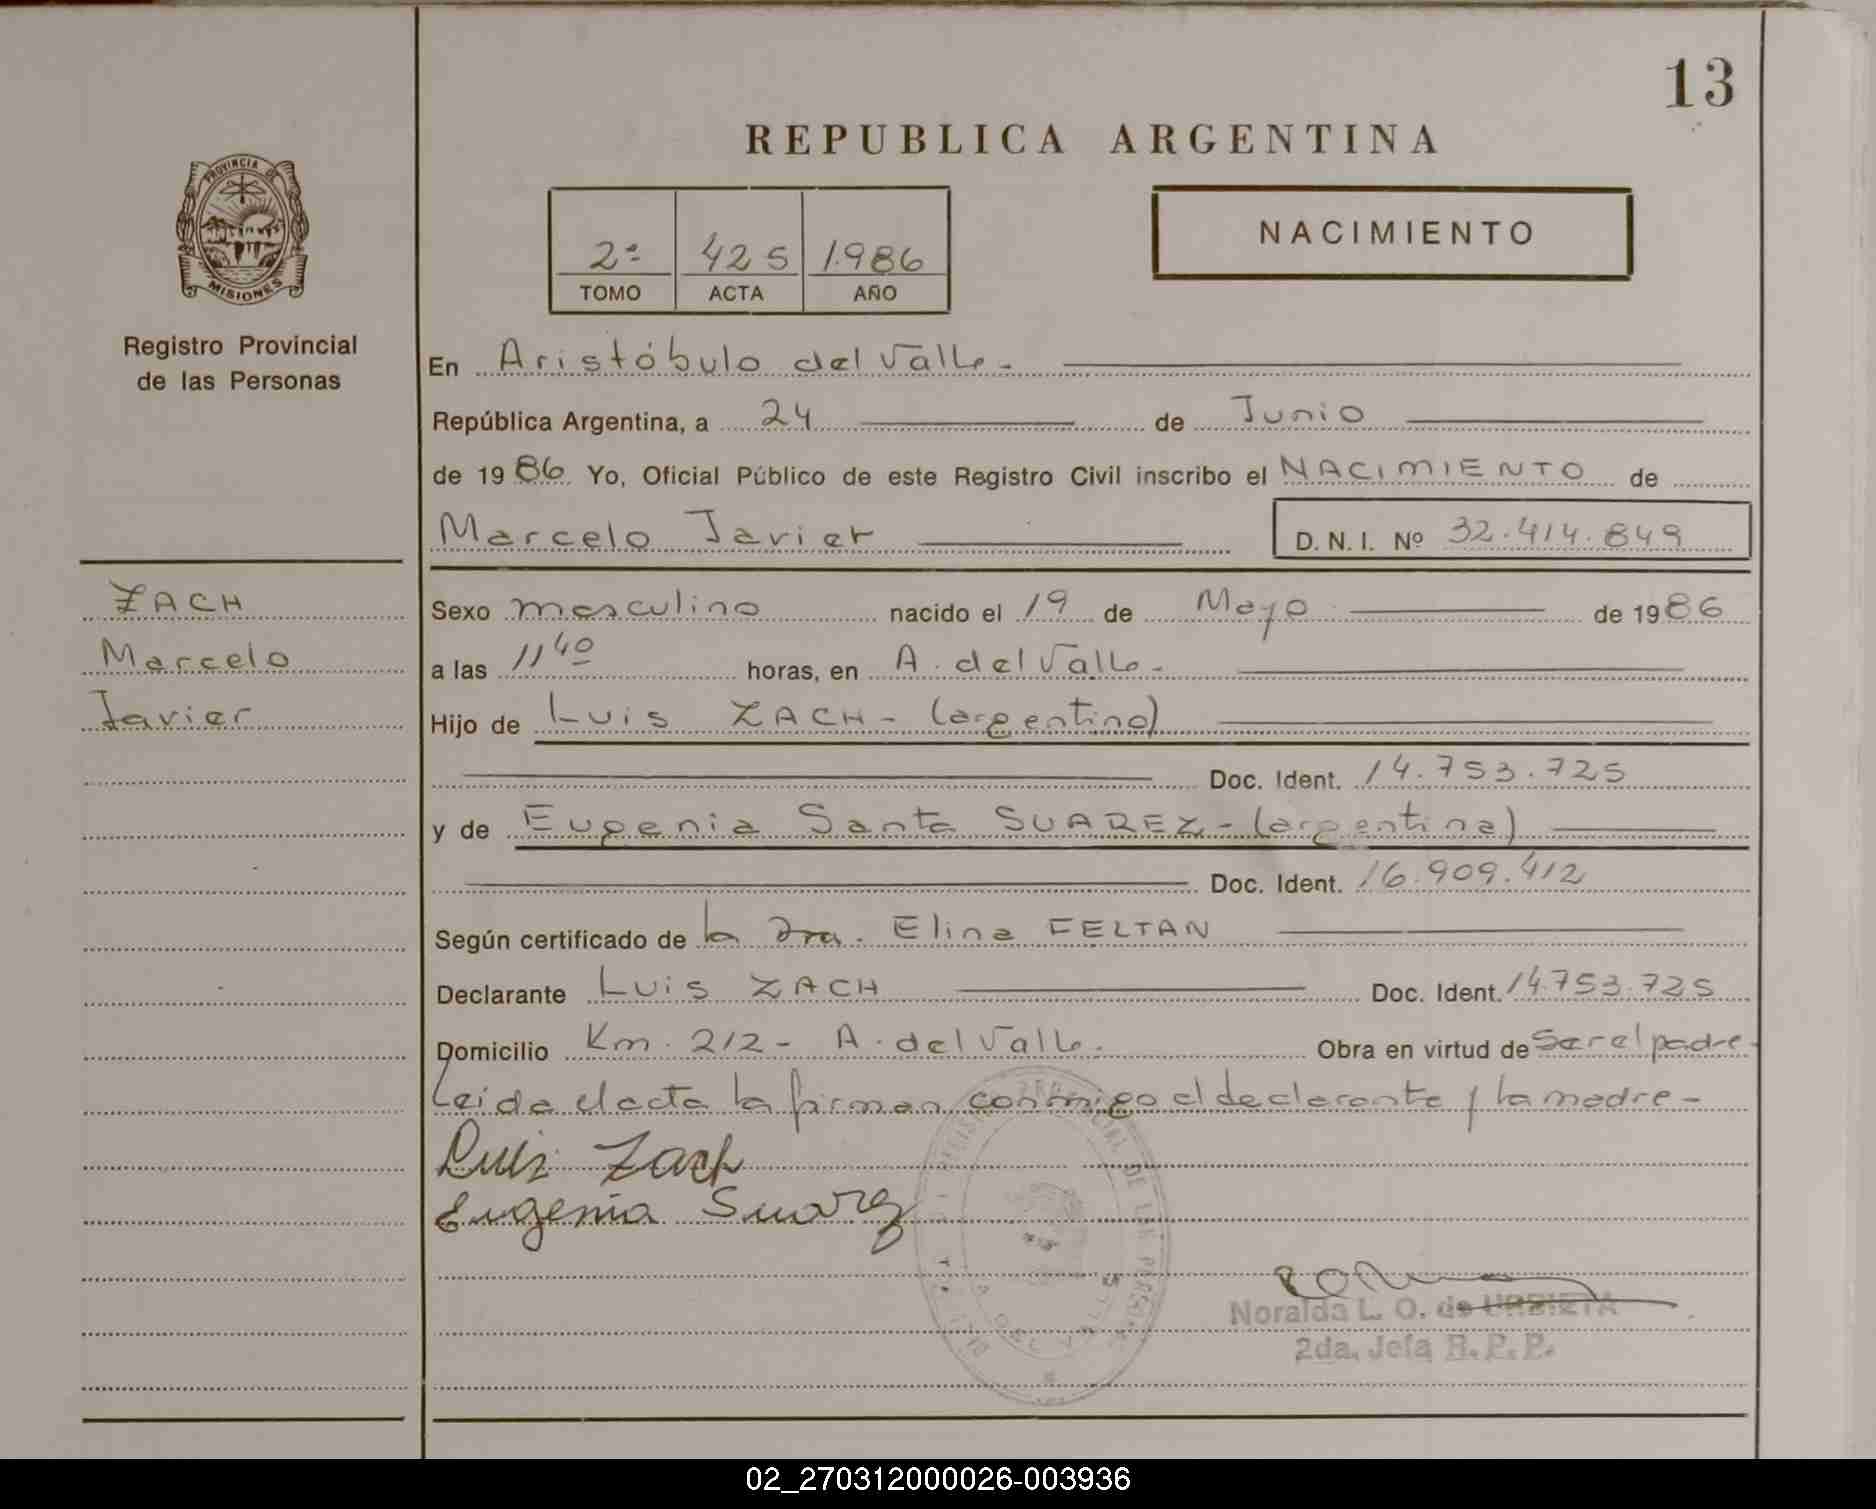 13
REPUBLICA ARGENTINA
PROVINCIA DE
MISIONES
Registro Provincial
de las Personas
2º 425 1.986
TOMO ACTA AÑO
NACIMIENTO
En Aristóbulo del Valle.
República Argentina, a 24 de Junio
de 1986 Yo, Oficial Público de este Registro Civil inscribo el NACIMIENTO de
Marcelo Javier D. N. I. Nº 32.414.849
ZACH
Marcelo
Javier
Sexo masculino nacido el 19 de Mayo de 1986
a las 11 40 horas, en A. del Valle.
Hijo de Luis ZACH - (argentino)
Doc. Ident. 14.753.725
y de Eugenia Santa SUAREZ - (argentina)
Doc. Ident. 16.909.412
Según certificado de la Dra. Elina FELTAN
Declarante Luis ZACH Doc. Ident. 14.753.725
Domicilio Km. 212 - A. del Valle. Obra en virtud de Ser el padre.
Leida el acta la firman conmigo el declarante y la madre -
Luis Zach
Eugenia Suarez
Noralda L. O. de URBIETA
2da. Jefa R. P. P.
02_270312000026-003936